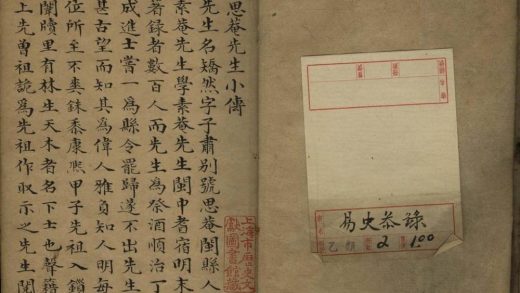 易史叅錄
2
1.00
思菴先生小傳
先生名矯然字子肅別號思菴閩縣人
素菴先生學素菴先生閩中耆宿明末
著錄者數百人而先生為祭酒順治丁
成進士嘗一為縣令罷歸遂不出先生
甚古望而知其為偉人雅負知人明每
位所至不爽銖黍康熙甲子先祖入鎖
闈牘里有林生天木者名下士也聲籍
上先曾祖詭為先祖作取示之先生閱
上海市歷史文
獻圖書館藏